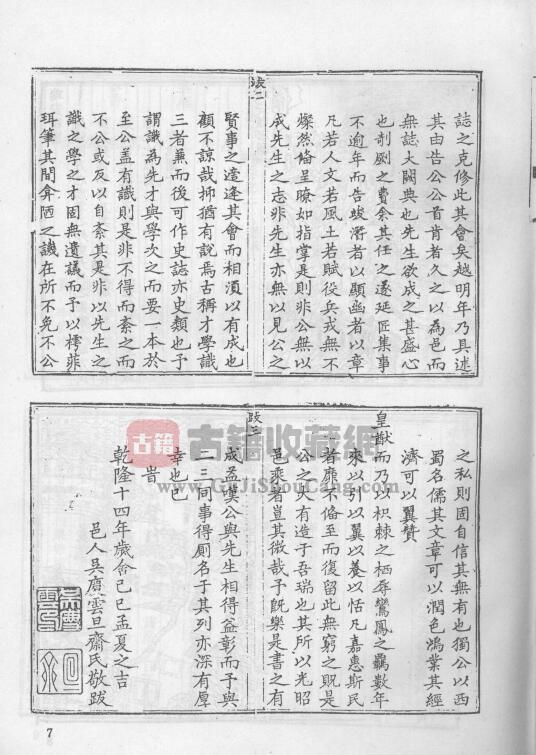 誌之克修此其會矣越明年乃具述
其由告公公首肯者久之以為邑而
無誌大闕典也先生欲成之甚盛心
也剞劂之費余其任之遂延匠集事
不逾年而告竣潛者以顯幽者以章
凡若人文若風土若賦役兵戎無不
燦然偹呈瞭如指掌是則非公無以
成先生之志非先生亦無以見公之
跋二
賢事之遠逢其會而相湏以有成也
顧不諒哉抑猶有說焉古稱才學識
三者兼而後可作史誌亦史類也予
謂識為先才與學次之而要一本於
至公盖有識則是非不得而紊之而
不公或反以自紊其是非以先生之
識之學之才固無遺議而予以樗菲
珥筆其間弇陋之譏在所不免不公
之私則固自信其無有也獨公以西
蜀名儒其文章可以潤色鴻業其經
濟可以翼贊
皇猷而乃以枳棘之栖辱鸞鳳之羈數年
來以引以翼以養以恬凡嘉惠斯民
者靡不偹至而復留此無窮之貺是
公之大有造于吾瑞也其所以光昭
邑乘者豈其微哉予旣樂是書之有
跋三
成益嘆公與先生相得益彰而予與
二三同事得厠名于其列亦深有厚
幸也已
旹
乾隆十四年歲侖己巳孟夏之吉
邑人吳廣雲旦齋氏敬跋
古籍
古籍收藏網
www.GuJiShouCang.com
7